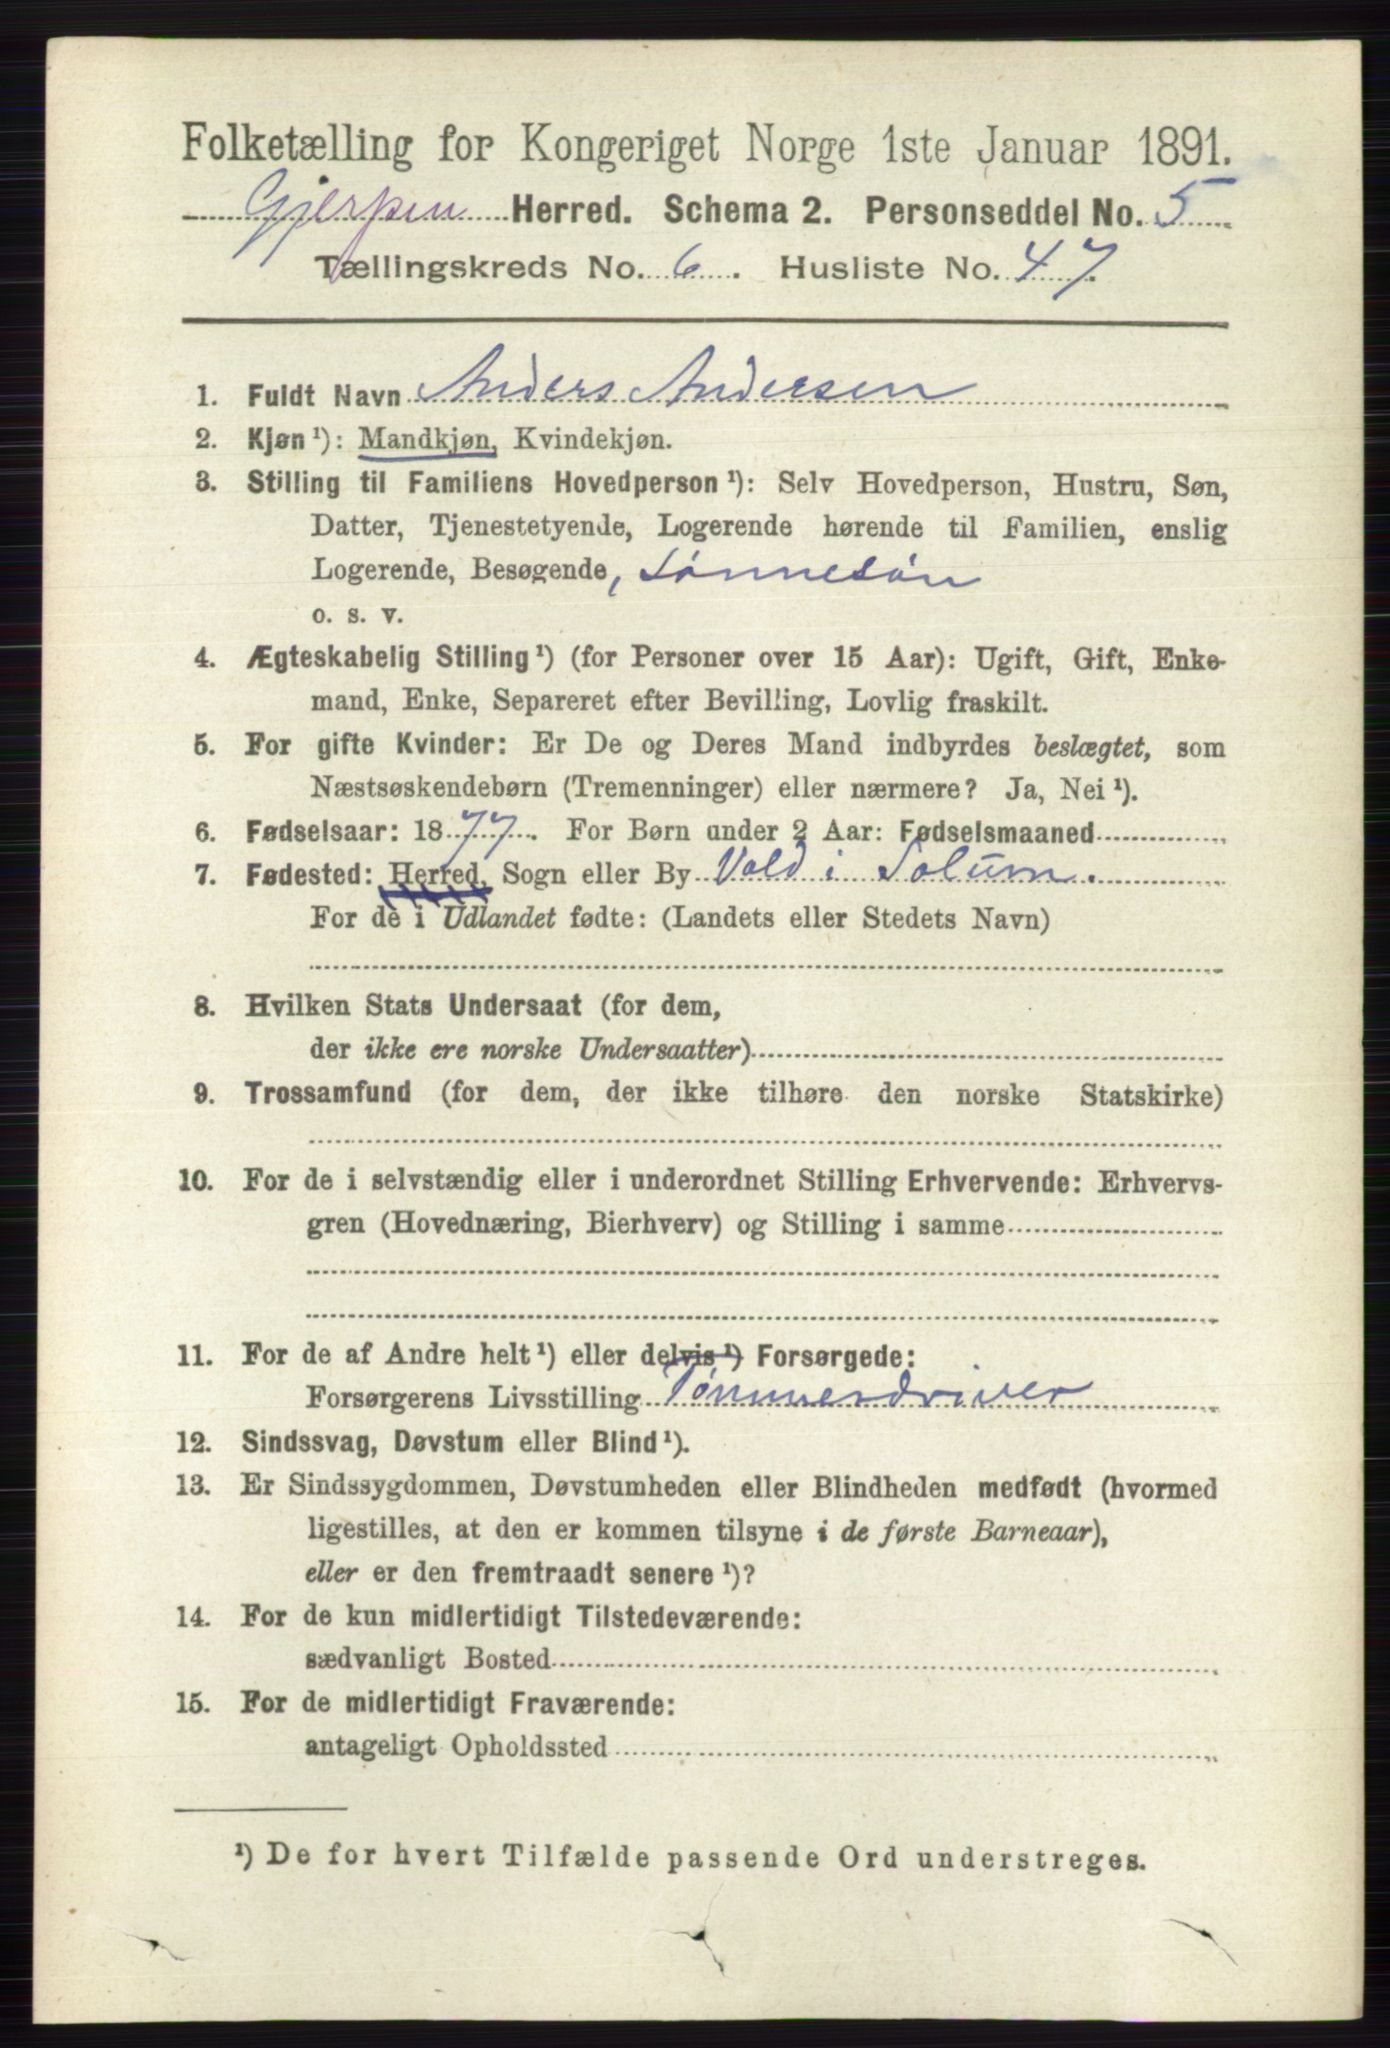 Folketælling for Kongeriget Norge 1ste Januar 1891.
Gjerpen Herred. Schema 2. Personseddel No. 5
Tællingskreds No. 6. Husliste No. 47.
1. Fuldt Navn Anders Andersen
2. Kjøn¹): Mandkjøn, Kvindekjøn.
3. Stilling til Familiens Hovedperson¹): Selv Hovedperson, Hustru, Søn,
Datter, Tjenestetyende, Logerende hørende til Familien, enslig
Logerende, Besøgende, Sønnesøn
o. s. v.
4. Ægteskabelig Stilling¹) (for Personer over 15 Aar): Ugift, Gift, Enke-
mand, Enke, Separeret efter Bevilling, Lovlig fraskilt.
5. For gifte Kvinder: Er De og Deres Mand indbyrdes beslægtet, som
Næstsøskendebørn (Tremenninger) eller nærmere? Ja, Nei¹).
6. Fødselsaar: 1877. For Børn under 2 Aar: Fødselsmaaned
7. Fødested: Herred, Sogn eller By Vold i Solum.
For de i Udlandet fødte: (Landets eller Stedets Navn)
8. Hvilken Stats Undersaat (for dem,
der ikke ere norske Undersaatter)
9. Trossamfund (for dem, der ikke tilhøre den norske Statskirke)
10. For de i selvstændig eller i underordnet Stilling Erhvervende: Erhvervs-
gren (Hovednæring, Bierhverv) og Stilling i samme
11. For de af Andre helt¹) eller delvis¹) Forsørgede:
Forsørgerens Livsstilling Tømmerdriver
12. Sindssvag, Døvstum eller Blind¹).
13. Er Sindssygdommen, Døvstumheden eller Blindheden medfødt (hvormed
ligestilles, at den er kommen tilsyne i de første Barneaar),
eller er den fremtraadt senere¹)?
14. For de kun midlertidigt Tilstedeværende:
sædvanligt Bosted
15. For de midlertidigt Fraværende:
antageligt Opholdssted
¹) De for hvert Tilfælde passende Ord understreges.